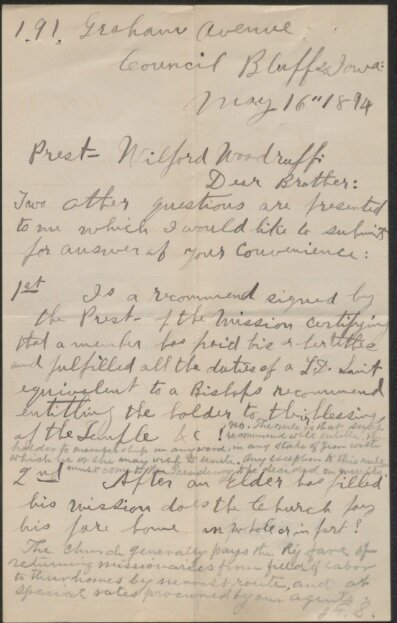 191. Graham Avenue
Council Bluffs, Iowa:
May 16" 1894
Prest- Wilford Woodruff:
Dear Brother:
Two other questions are presented
to me which I would like to submit
for answer at your convenience:
1st Is a recommend signed by
the Prest- of the Mission certifying
that a member has paid his or her tithes
and fulfilled all the duties of a L.D. Saint
equivalent to a Bishops recommend
entitling the holder to the blessings
of the Temple &c? No. The rule is that such
recommend will entitle the
holder to membership in any ward, in any Stake of Zion in the
which he or she may wish to reside. Any exceptions to this rule
must come to the Presidency to be decided on merits.
2nd After an Elder has filled
his mission does the Church pay
his fare home in whole or in part?
The Church generally pays the Ry fare of
returning missionaries from field of labor
to their homes by nearest route, and at
special rates procured by our agents.
J. F. S.